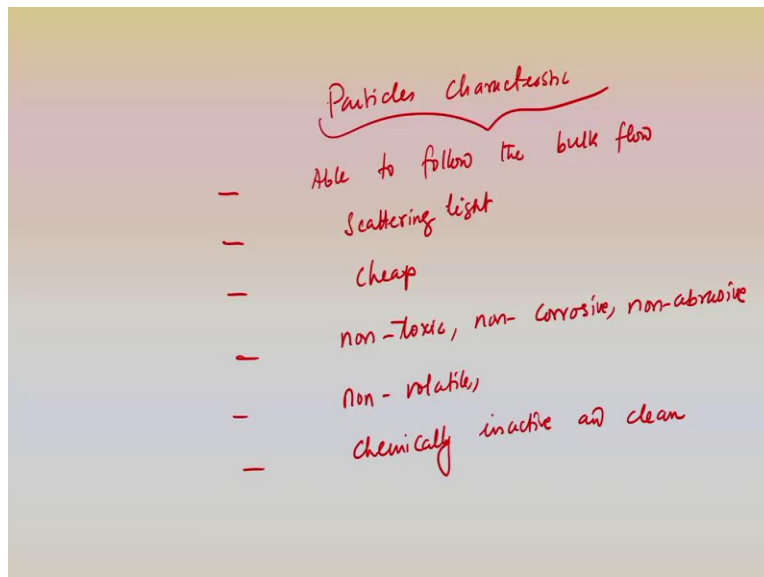 Particles characteristic
- Able to follow the bulk flow
- Scattering light
- Cheap
- non-toxic, non-corrosive, non-abrasive
- Non-volatile,
- Chemically inactive and clean